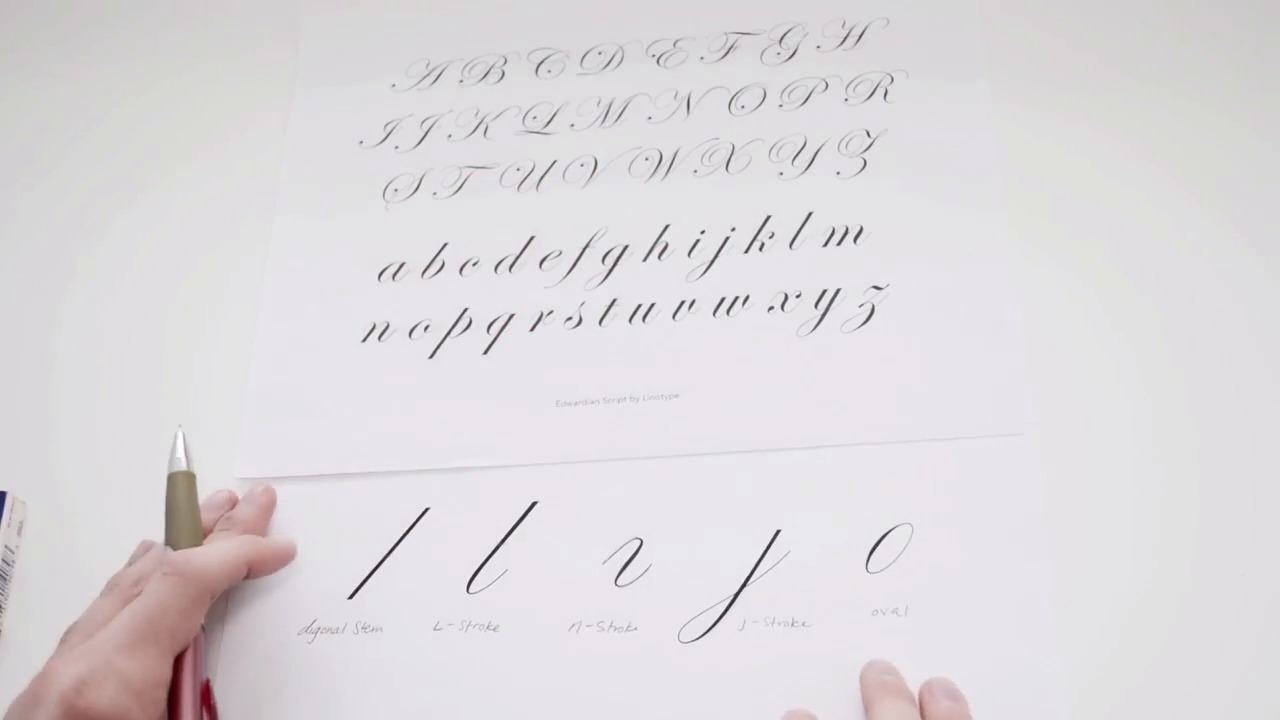 A B C D E F G H
I J K L M N O P R
S T U V W X Y Z
a b c d e f g h i j k l m
n o p q r s t u v w x y z
Edwardian Script by Linotype
digonal Stem L-Stroke n-Stroke j-Stroke oval